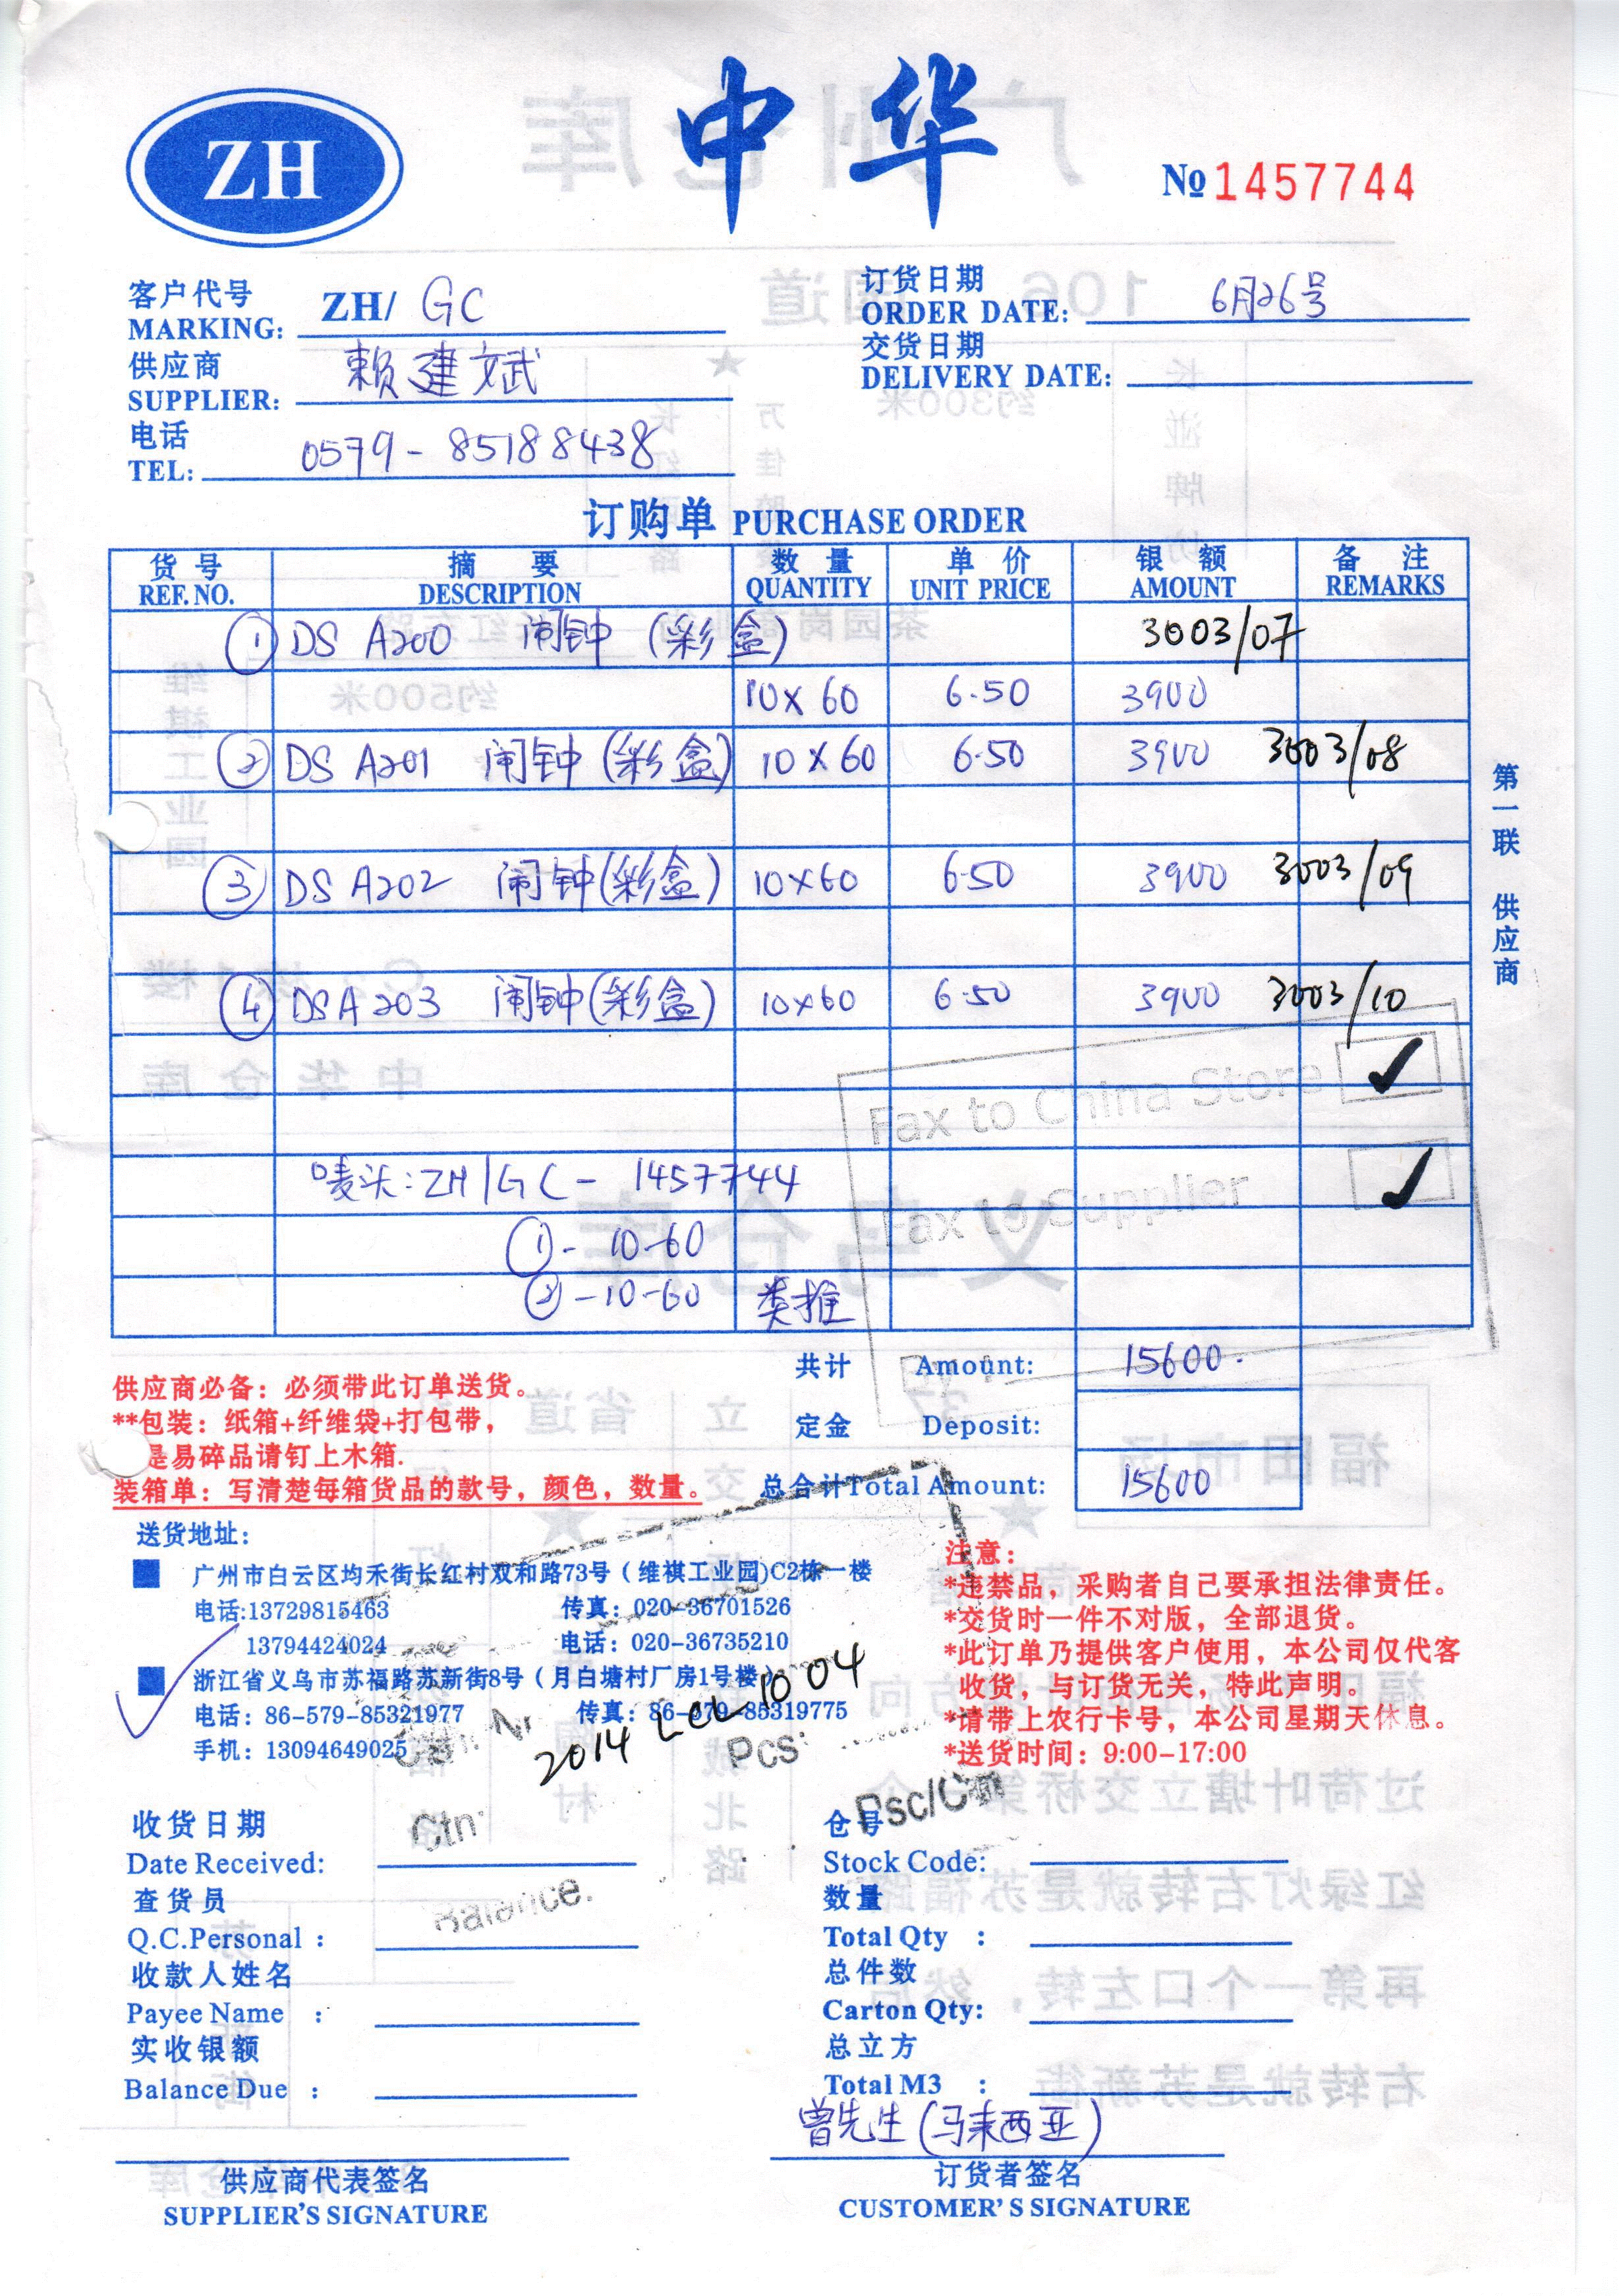 ZH
中华
№ 1457744
客户代号
MARKING: ZH/ GC
订货日期
ORDER DATE: 6月26号
供应商
SUPPLIER: 赖建斌
交货日期
DELIVERY DATE:
电话
TEL: 0579-85188438
订购单 PURCHASE ORDER
货号 摘要 数量 单价 银额 备注
REF. NO. DESCRIPTION QUANTITY UNIT PRICE AMOUNT REMARKS
① DS A200 闹钟 (彩盒) 3003/07
10×60 6.50 3900
② DS A201 闹钟 (彩盒) 10×60 6.50 3900 3003/08
③ DS A202 闹钟 (彩盒) 10×60 6.50 3900 3003/09
④ DS A203 闹钟 (彩盒) 10×60 6.50 3900 3003/10
Fax to China Store ✓
唛头: ZH/GC-1457744
Fax to Supplier ✓
①-10-60
②-10-60 类推
第一联 供应商
共计 Amount: 15600.
定金 Deposit:
总合计Total Amount: 15600
供应商必备：必须带此订单送货。
**包装：纸箱+纤维袋+打包带，
是易碎品请钉上木箱.
装箱单：写清楚每箱货品的款号，颜色，数量。
送货地址：
广州市白云区均禾街长红村双和路73号（维祺工业园)C2栋一楼
电话:13729815463 传真：020-36701526
13794424024 电话：020-36735210
浙江省义乌市苏福路苏新街8号（月白塘村厂房1号楼）
电话：86-579-85321977 传真：86-579-85319775
手机：13094649025
注意：
*违禁品，采购者自己要承担法律责任。
*交货时一件不对版，全部退货。
*此订单乃提供客户使用，本公司仅代客
收货，与订货无关，特此声明。
*请带上农行卡号，本公司星期天休息。
*送货时间：9:00-17:00
2014 LCL 1004
Pcs
Psc/Ctn
Ctn
Balance.
收货日期
Date Received:
查货员
Q.C.Personal :
收款人姓名
Payee Name :
实收银额
Balance Due :
仓号
Stock Code:
数量
Total Qty :
总件数
Carton Qty:
总立方
Total M3 :
曾先生 (马来西亚)
供应商代表签名
SUPPLIER'S SIGNATURE
订货者签名
CUSTOMER'S SIGNATURE